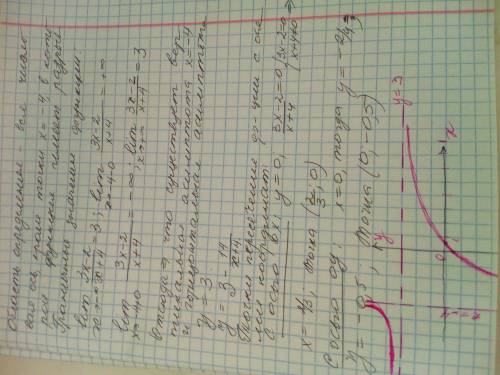 Область определения - все число
вая ось, кроме точки x=-4, в кото
рой функция имеет разрыв
Граничные значения функции
lim 3x-2/x+4 = 3; lim 3x-2/x+4 = +∞
x→-∞ x→-4-0
lim 3x-2/x+4 = -∞; lim 3x-2/x+4 = 3
x→-4+0 x→+∞
Отсюда → что существует вер-
тикальная асимптота x=-4
и горизонтальная асимптота
y=3
y = 3 - 14/x+4
Точки пересечения ф-ции с ося
ми координат
С осью ox; y=0; 3x-2/x+4=0 {3x-2=0 x+4≠0 ⇒
x=2/3; точка (2/3; 0)
С осью oy; x=0, тогда y=-2/4 ⇒
y=-0,5; точка (0; -0,5)
y
y=3
0
1
x
x=-4